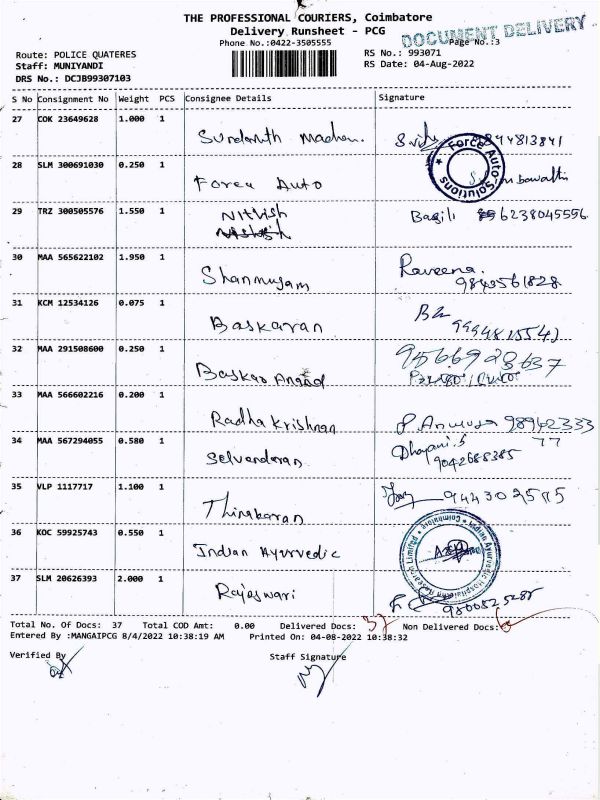 THE PROFESSIONAL COURIERS, Coimbatore
Delivery Runsheet - PCG
Phone No.:0422-3505555
DOCUMENT DELIVERY
Page No.:3
Route: POLICE QUATERES
Staff: MUNIYANDI
DRS No.: DCJB99307103
RS No.: 993071
RS Date: 04-Aug-2022
S No Consignment No Weight PCS Consignee Details Signature
27 COK 23649628 1.000 1
28 SLM 300691030 0.250 1 Forcu Auto
Force Auto-Solutions
29 TRZ 300505576 1.550 1 Nitish
Bagili 6238045596
30 MAA 565622102 1.950 1 Shanmugam Raveena.
9843561828
31 KCM 12534126 0.075 1 Baskaran
32 MAA 291508600 0.250 1 Baskar Anand 9566928637
33 MAA 566602216 0.200 1 Radha Krishnan 98942333
77
34 MAA 567294055 0.580 1 Selvendaran
9042685385
35 VLP 1117717 1.100 1 Thinakaran
36 KOC 59925743 0.550 1 Indian Ayurvedic
37 SLM 20626393 2.000 1 Rajeswari
Total No. Of Docs: 37 Total COD Amt: 0.00 Delivered Docs: 37 Non Delivered Docs:
Entered By :MANGAIPCG 8/4/2022 10:38:19 AM Printed On: 04-08-2022 10:38:32
Verified By Staff Signature